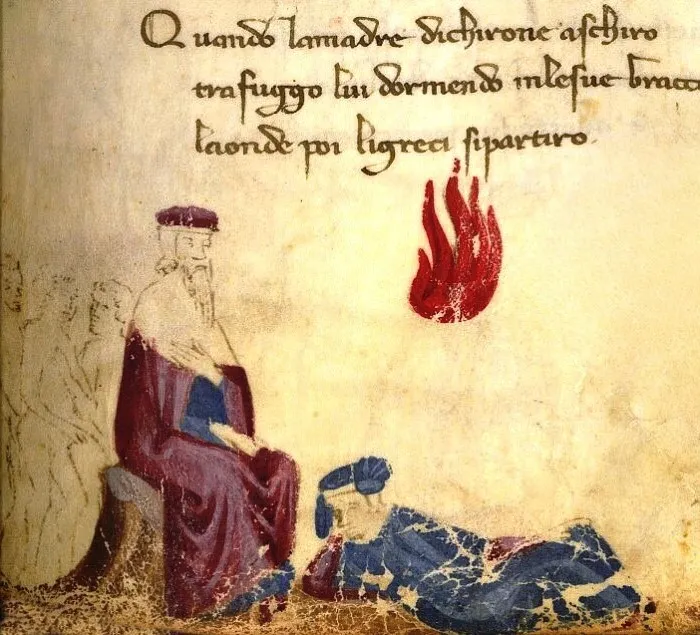 Quando lamadre dichirone aschiro
trafuggo lui dormendo inlesue bracc
laonde poi ligreci sipartiro.